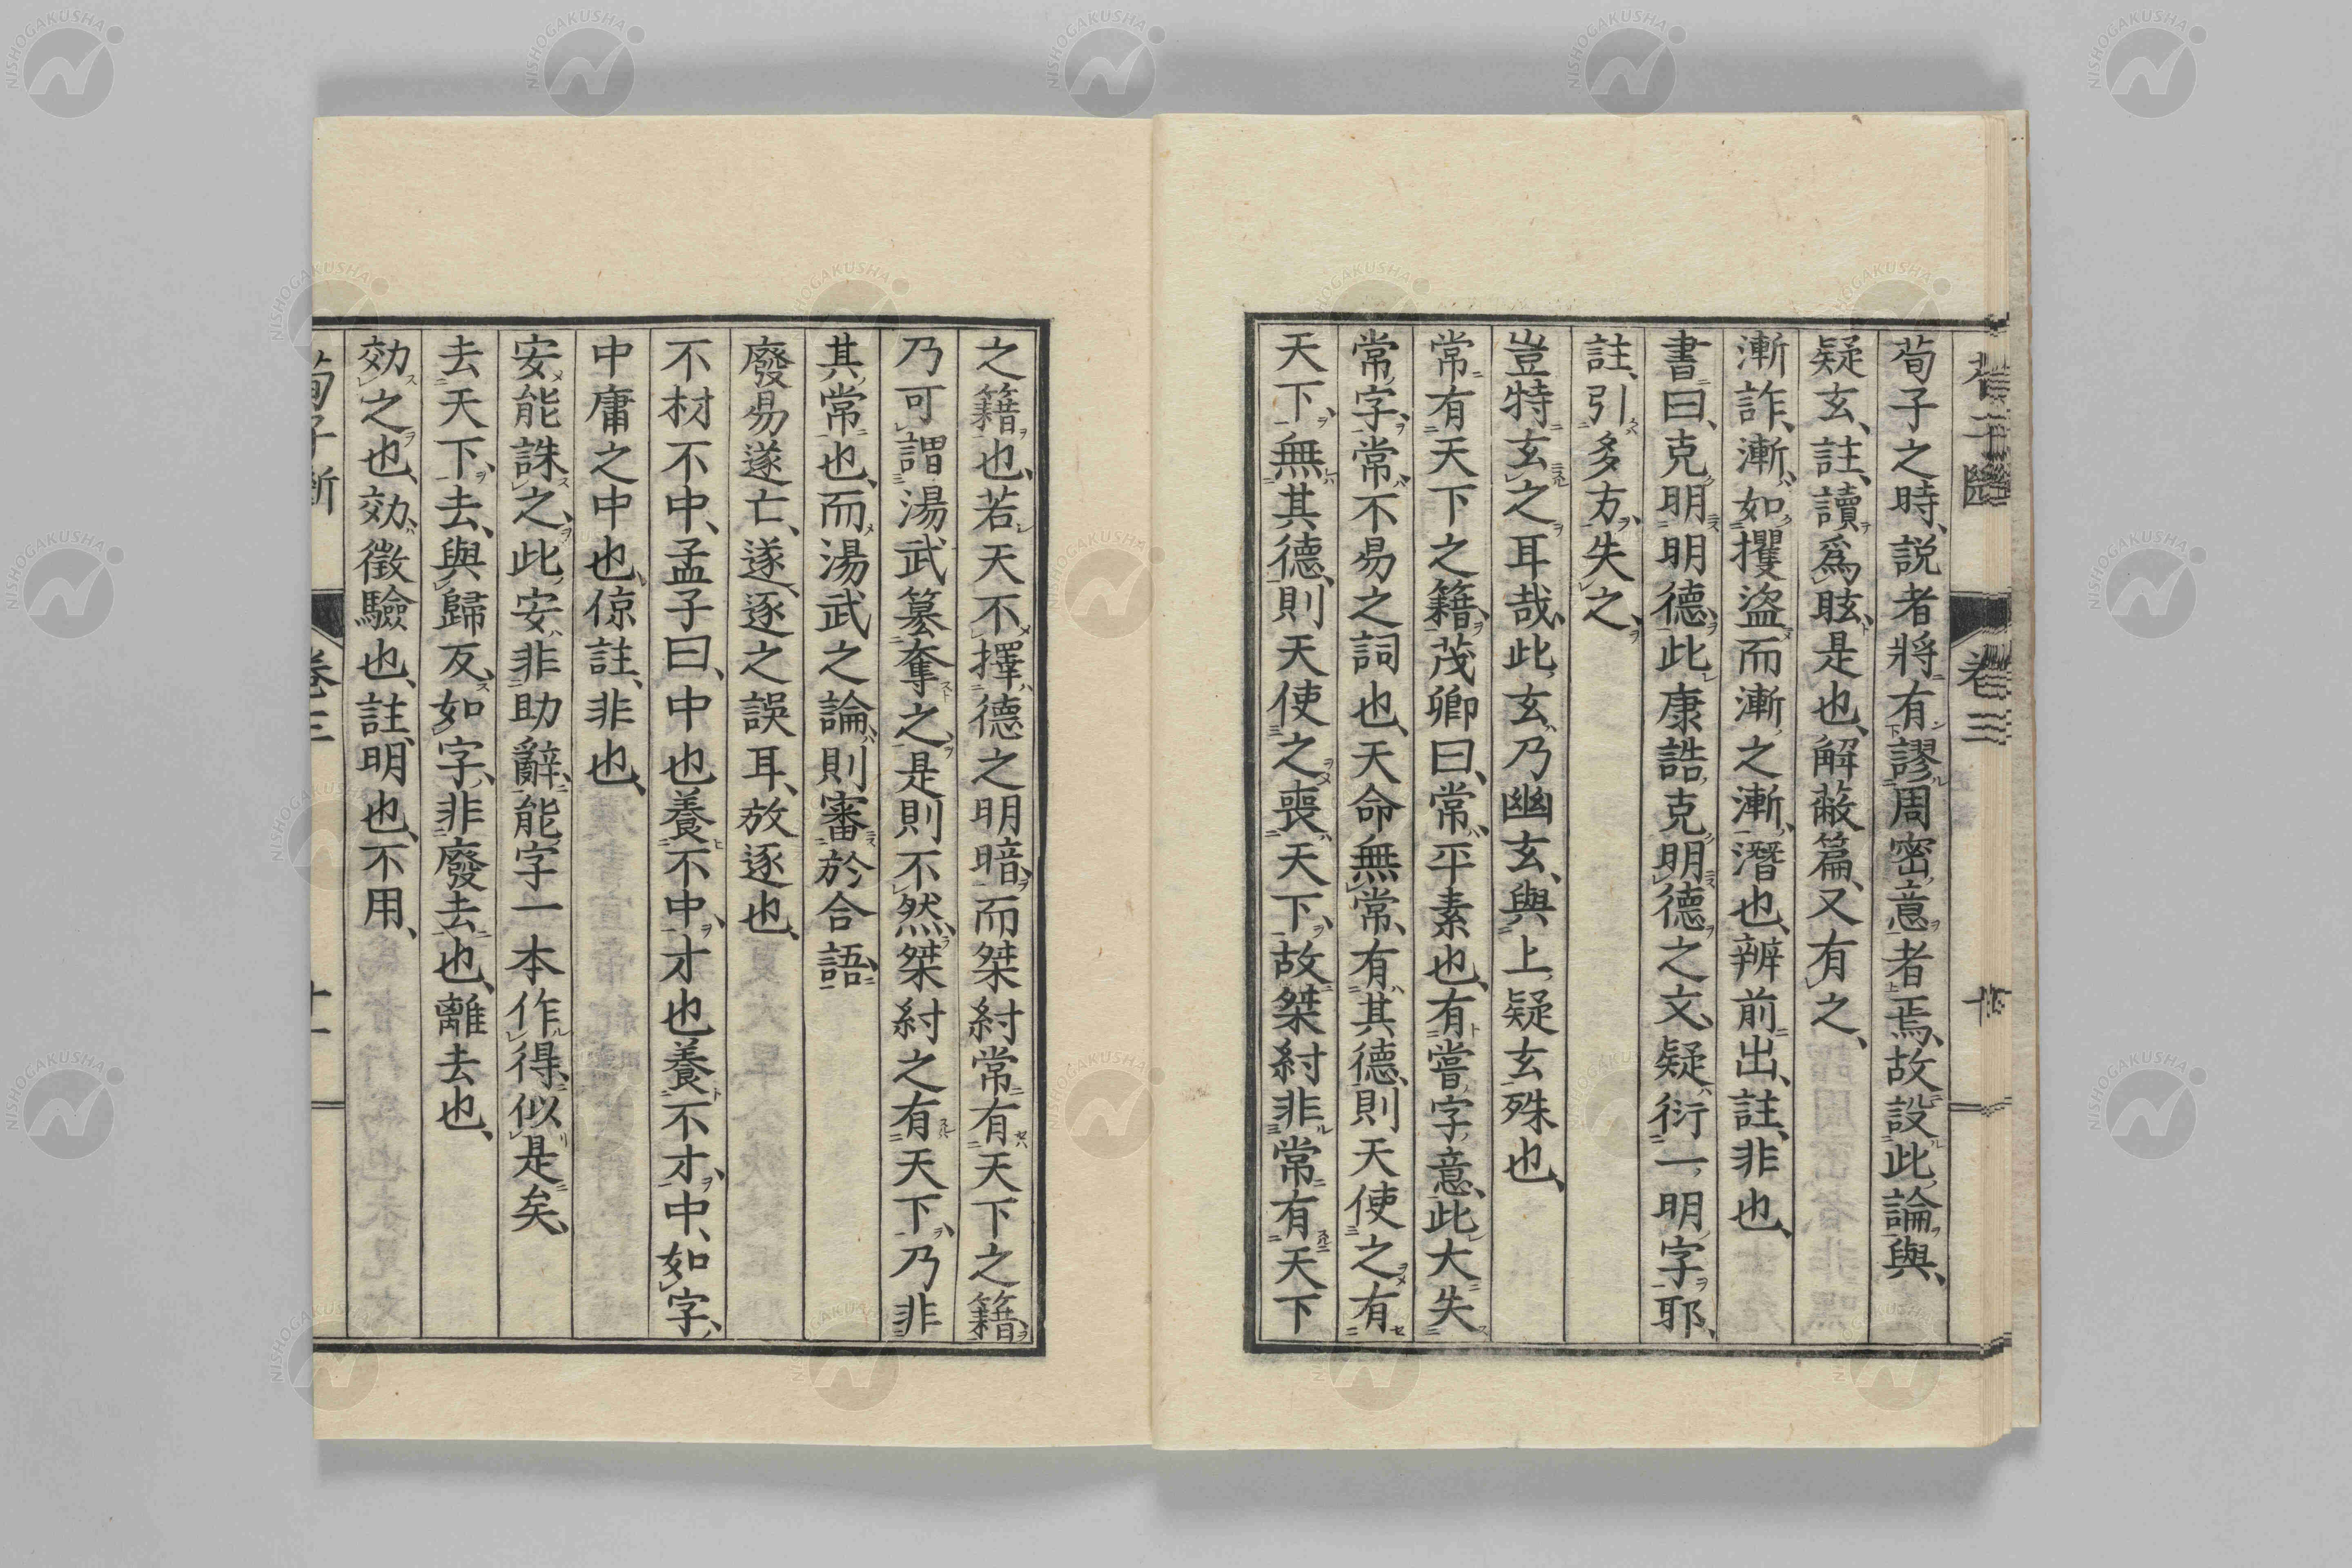 荀子之時、説者將有謬周密意者焉、故設此論與、
疑玄、註、讀爲眩、是也、解蔽篇、又有之、
漸詐、漸、如攫盜而漸之漸、潛也、辨前出、註、非也、
書曰、克明明德、此康誥、克明德之文、疑衍一明字耶、
註、引多方、失之、
豈特玄之耳哉、此玄、乃幽玄、與上疑玄殊也、
常有天下之籍、茂卿曰、常、平素也、有嘗字意、此大失
常字、常、不易之詞也、天命無常、有其德、則天使之有
天下、無其德、則天使之喪天下、故桀紂非常有天下
之籍也、若天不擇德之明暗、而桀紂常有天下之籍、
乃可謂湯武簒奪之、是則不然、桀紂之有天下、乃非
其常也、而湯武之論、則審於合語、
廢易遂亡、遂、逐之誤耳、放逐也、
不材不中、孟子曰、中也養不中、才也養不才、中、如字、
中庸之中也、倞註、非也、
安能誅之、此安、非助辭、能字一本作得、似是矣、
去天下、去、與歸反、如字、非廢去也、離去也、
効之也、効、徵驗也、註、明也、不用、
荀子斷 卷三 十一
卷三 十